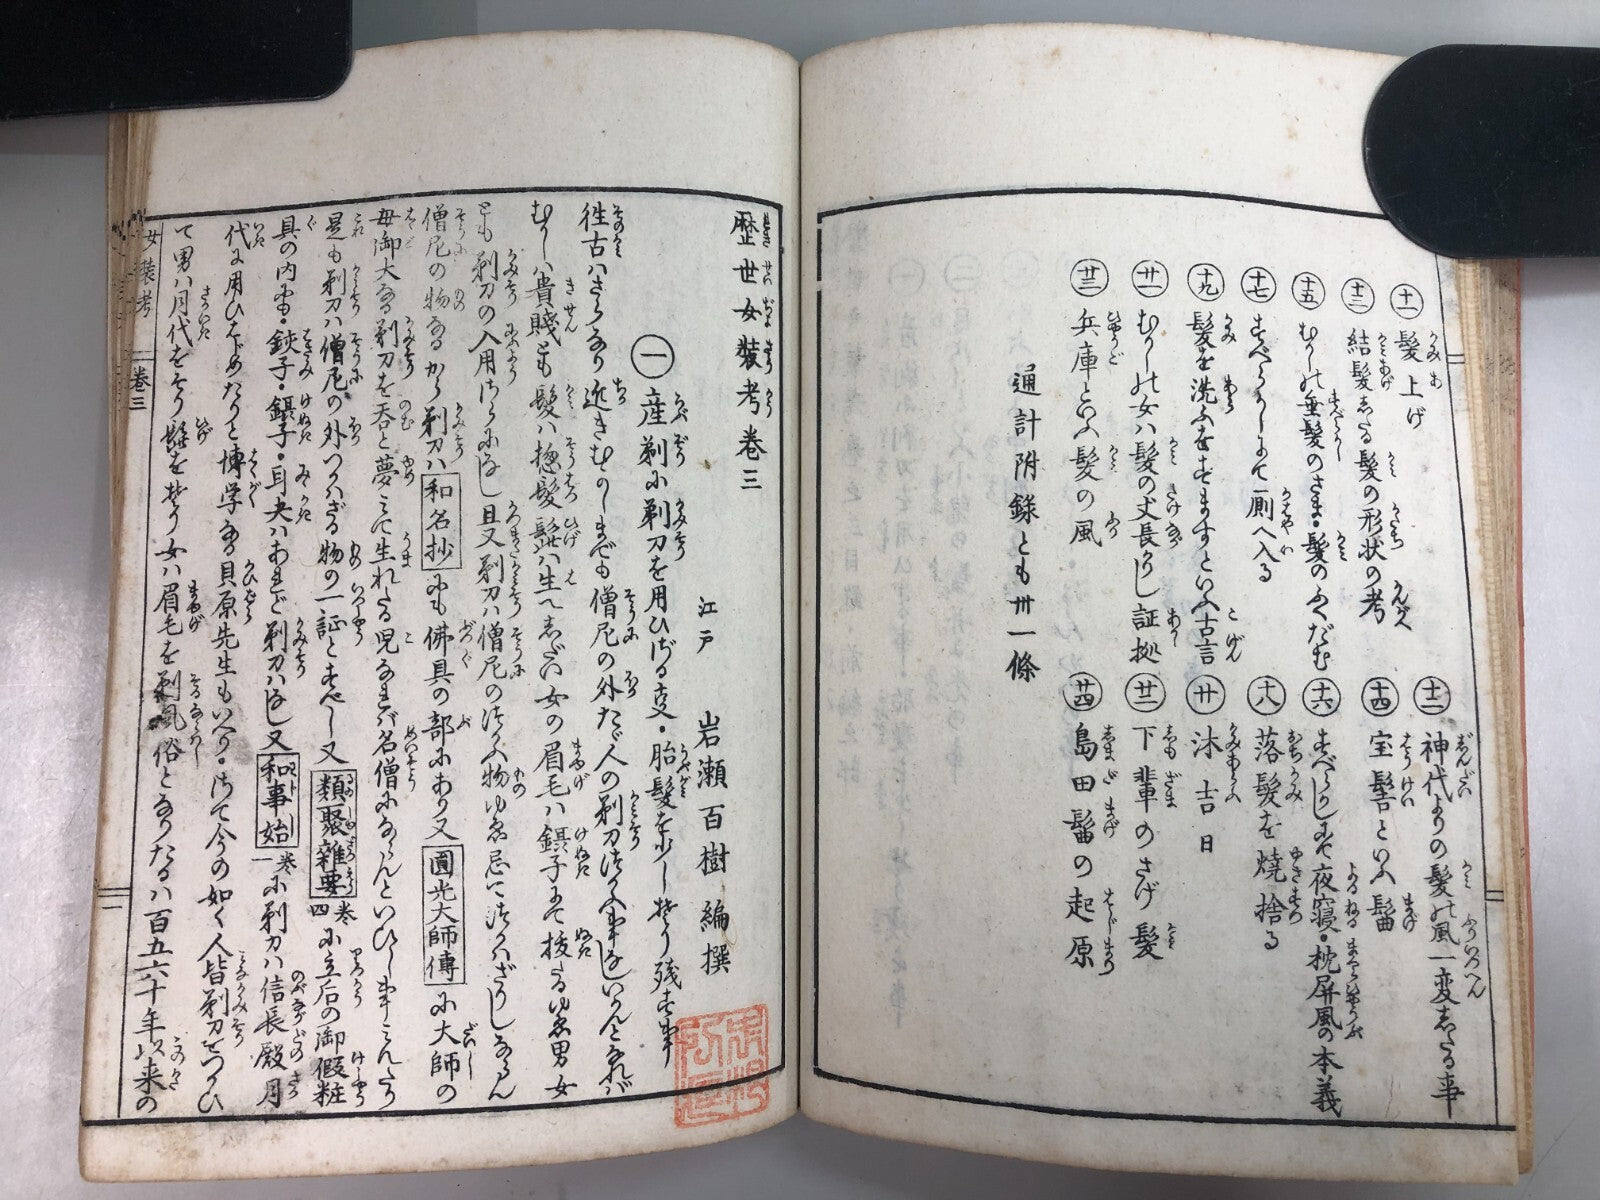 十一 髪上げ
十二 神代よりの髪の風一変したる事
十三 結髪したる髪の形状の考
十四 宝髻といふ髷
十五 むかしの垂髪のさま・髪のふくだむ
十六 すべらかしにて夜寝・枕屏風の本義
十七 すべらかしにて厠へ入る
十八 落髪を焼捨る
十九 髪を洗ふをすますといふ古言
廿 沐吉日
廿一 むかしの女ハ髪の丈長かりし証拠
廿二 下輩のさげ髪
廿三 兵庫といふ髪の風
廿四 島田髷の起原
通計附録とも卅一條
歴世女装考巻三
江戸 岩瀬百樹編撰
一 産剃小剃刀を用ひざる支・胎髪を少し剃り残す事
徃古ハさらなり近きむかしまでも僧尼の外たゞ人の剃刀つかふ事なしいかんとなれバ
むかしハ貴賤とも髪ハ惣髪髭ハ生へしだい女の眉毛ハ鑷子にて抜たるゆゑ男女
とも剃刀の入用さらになし且又剃刀ハ僧尼のつかふ物ゆゑ忌てつかハざりしならん
僧尼の物なるから剃刀ハ和名抄にも佛具の部にあり又圓光大師傳に大師の
母御大なる剃刀を呑と夢ミて生れたる児なれバ名僧にならんといひし事ミえたり
是も剃刀ハ僧尼の外つかハざる物の一証とすべし又類聚雑要巻四に立后の御假粧
具の内にも・鋏子・鑷子・耳夬ハあれど剃刀ハなし又和事始巻一に剃刀ハ信長殿月
代に用ひはじめたりと博学なる貝原先生もいへり・さて今の如く人皆剃刀をつかひ
て男ハ月代をそり髭を剃り女ハ眉毛を剃風俗となりたるハ百五六十年以来の
女装考 巻三 一